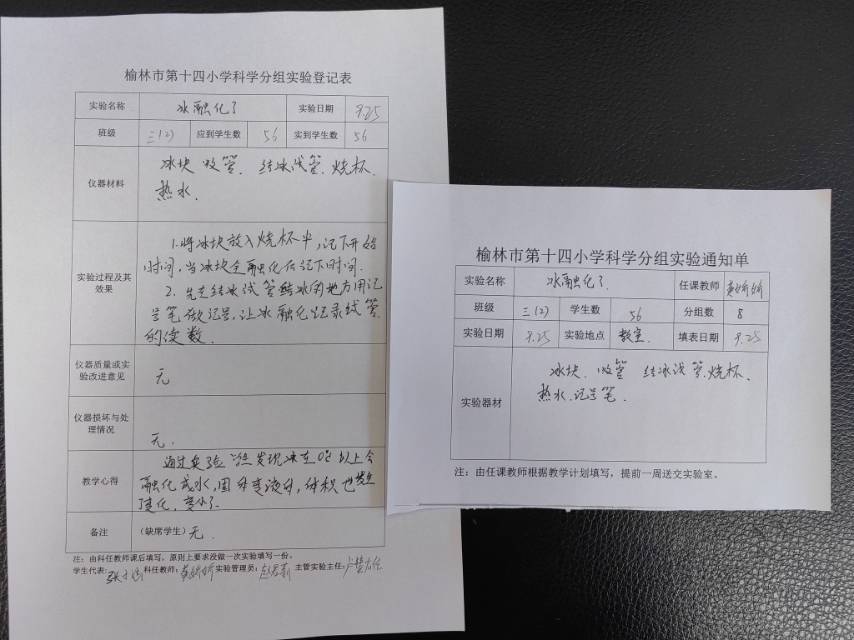 榆林市第十四小学科学分组实验登记表
实验名称 冰融化了 实验日期 9.25
班级 三(2) 应到学生数 56 实到学生数 56
仪器材料 冰块 吸管. 结冰试管. 烧杯.
热水.
实验过程及其效果 1.将冰块放入烧杯中,记下开始
时间,当冰块全融化后记下时间.
2.先在结冰试管结冰的地方用记
号笔做记号,让冰融化记录试管
的读数.
仪器质量或实验改进意见 无
仪器损坏与处理情况 无.
教学心得 通过实验 发现冰在0℃以上会
融化成水,固体变液体,体积也发生
变化,变小了.
备注 (缺席学生)无.
注:由科任教师课后填写,原则上要求没做一次实验填写一份。
学生代表: 科任教师: 实验管理员: 主管实验主任:
榆林市第十四小学科学分组实验通知单
实验名称 冰融化了. 任课教师
班级 三(2) 学生数 56 分组数 8
实验日期 9.25 实验地点 教室. 填表日期 9.25
实验器材 冰块. 吸管 结冰试管.烧杯.
热水.记号笔.
注:由任课教师根据教学计划填写,提前一周送交实验室。